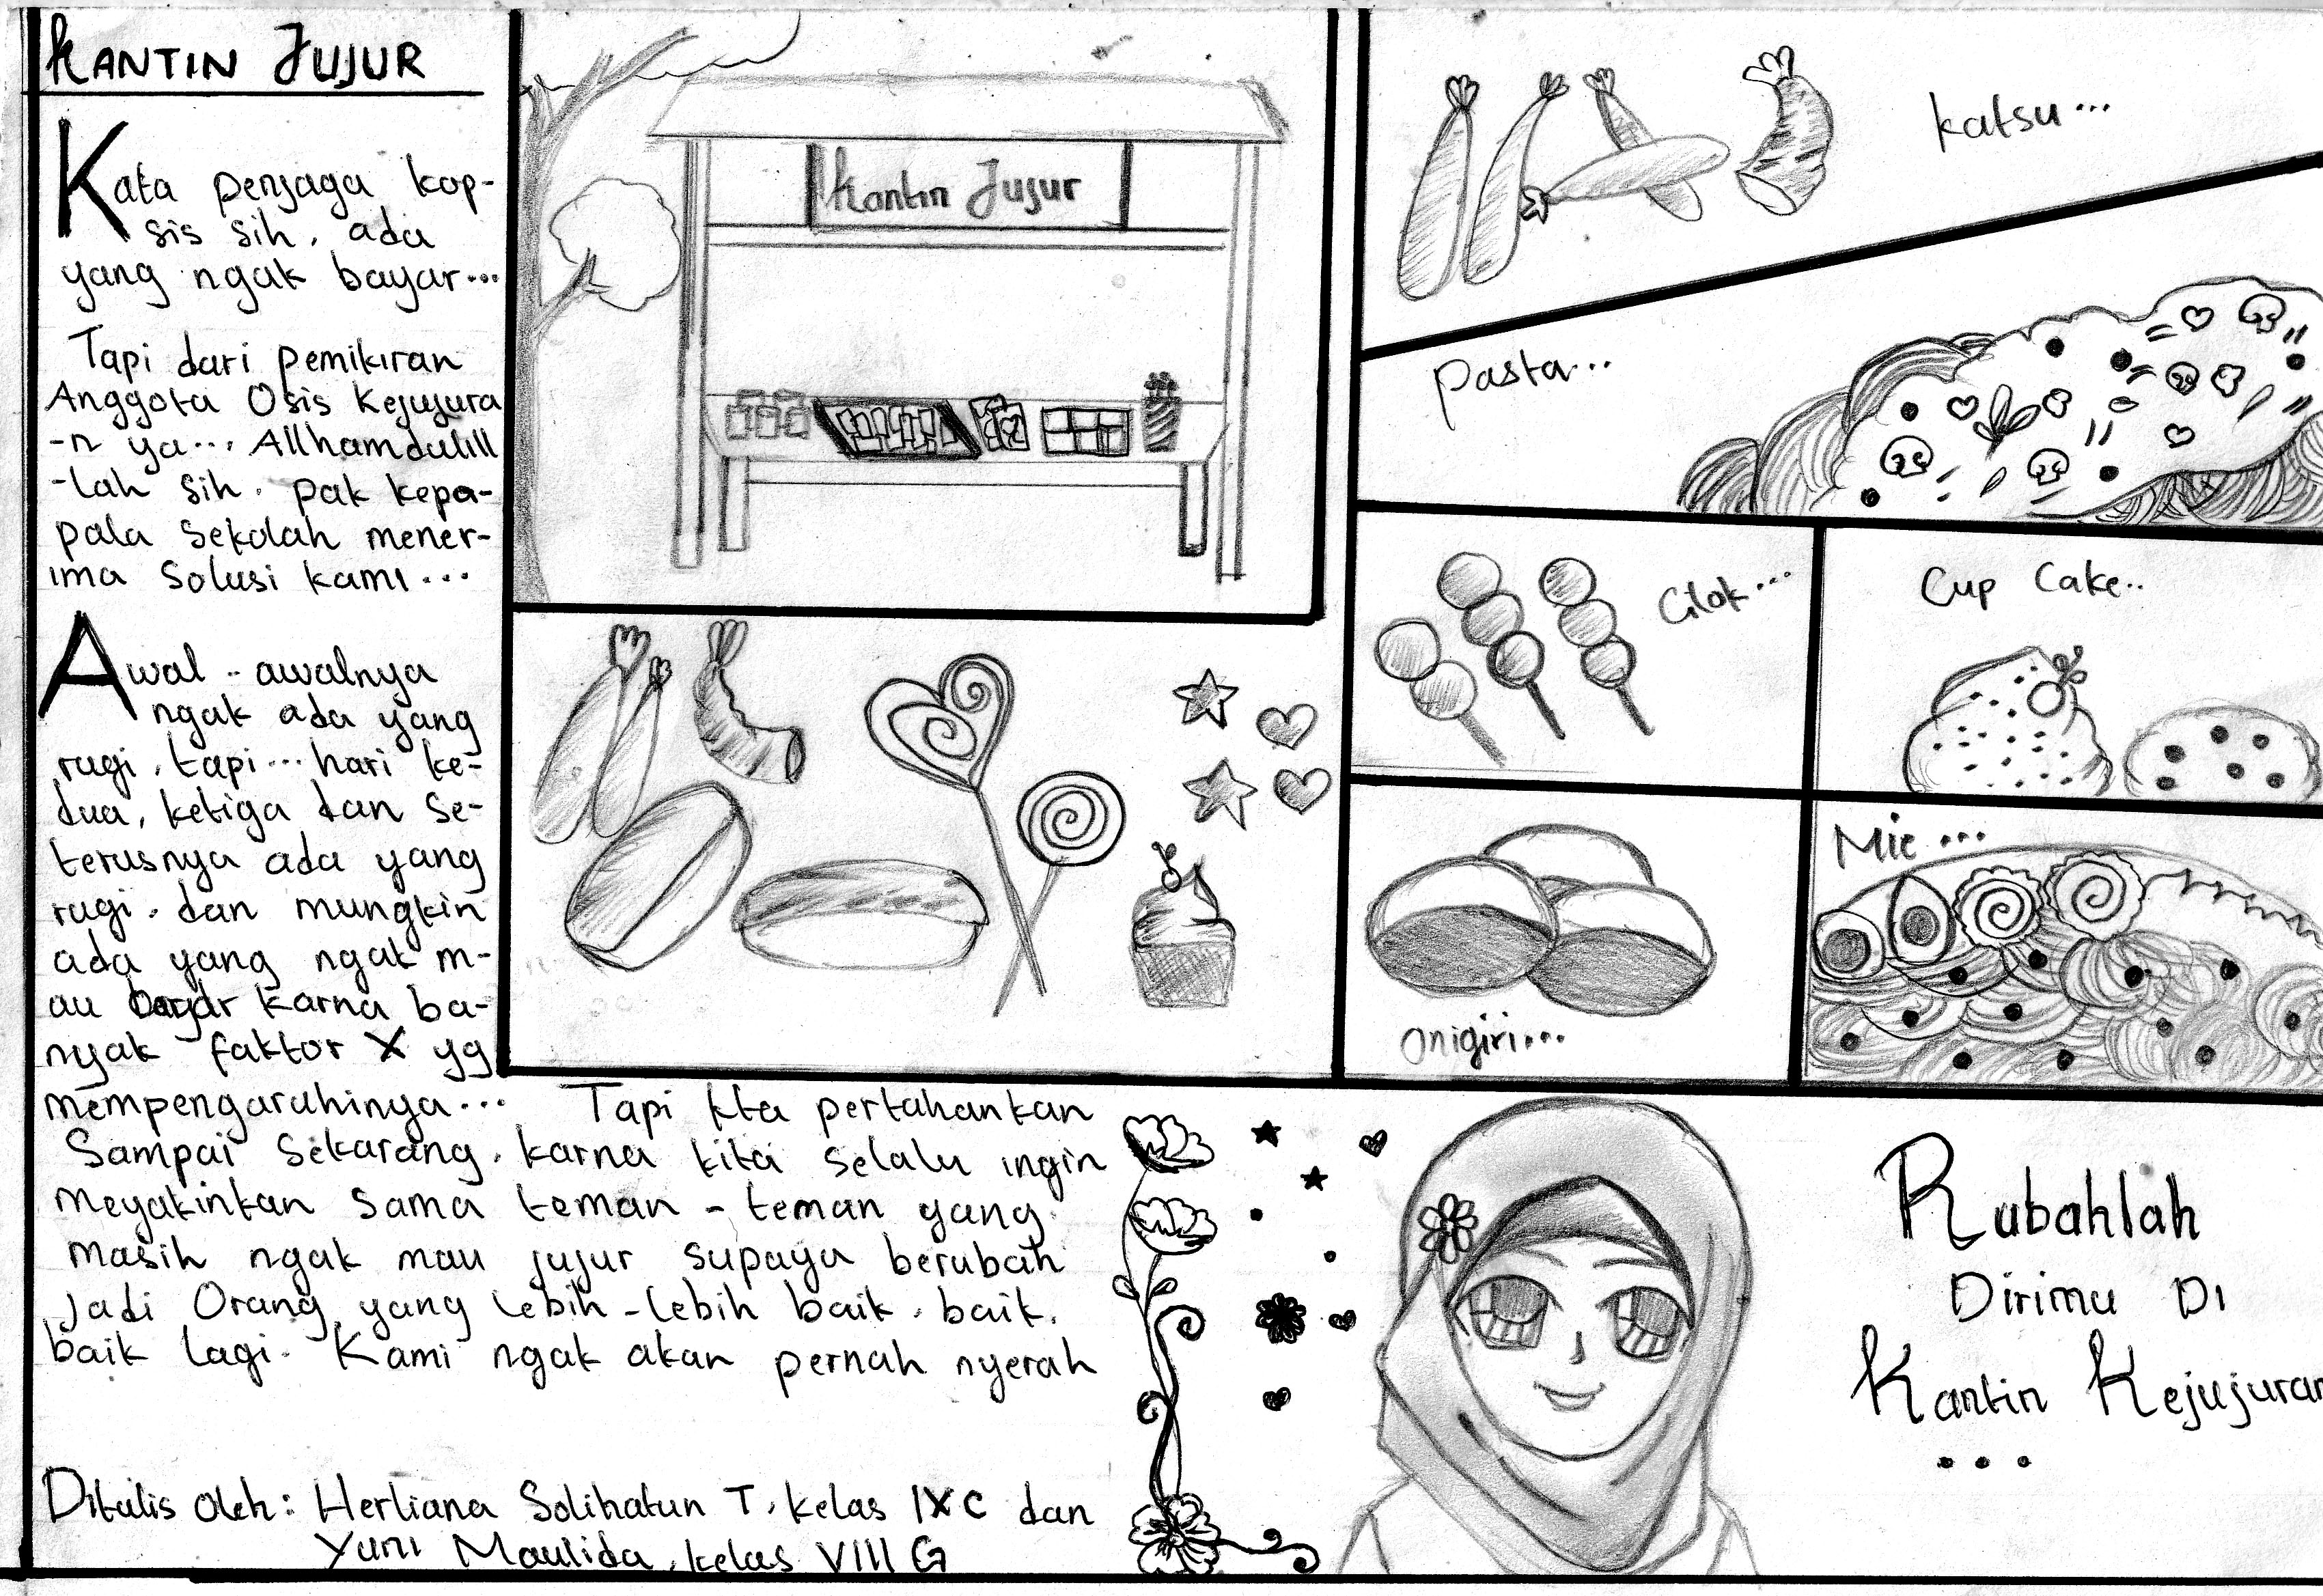 KANTIN JUJUR
Kata penjaga kop-
sis sih, ada
yang ngak bayar...
Tapi dari pemikiran
Anggota Osis Kejujura
-n ya... Allhamdulill
-lah sih. pak kepa-
pala sekolah mener-
ima solusi kami...
Awal - awalnya
ngak ada yang
rugi, tapi... hari ke-
dua, ketiga dan se-
terusnya ada yang
rugi. dan mungkin
ada yang ngak m-
au bayar karna ba-
nyak faktor X yg
mempengaruhinya... Tapi kta pertahankan
Sampai sekarang, karna kita selalu ingin
meyakinkan sama teman - teman yang
masih ngak mau jujur supaya berubah
Jadi Orang yang lebih - lebih baik. baik.
baik lagi. Kami ngak akan pernah nyerah
Ditulis Oleh: Herliana Solihatun T, kelas IX C dan
Yuni Maulida, kelas VIII G
Kantin Jujur
katsu...
pasta...
Cilok...
Cup Cake..
onigiri...
Mie...
Rubahlah
Dirimu Di
Kantin Kejujuran
...